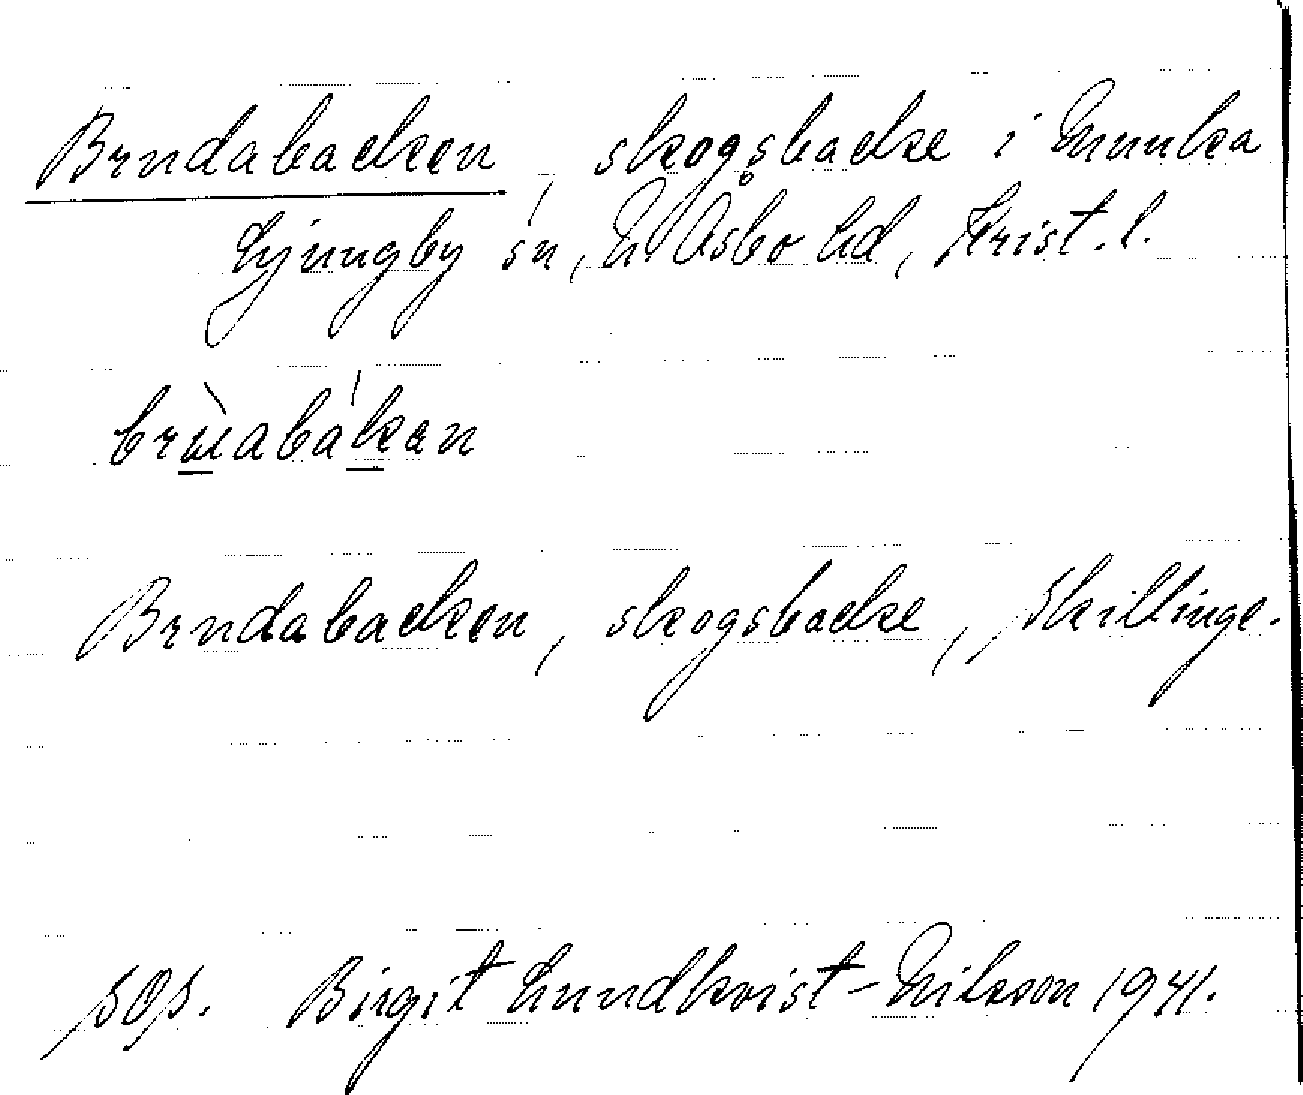 Brudabacken, skogsbacke i Munka
Ljungby sn, N Åsbo hd, Krist. l.
Brudabacken, skogsbacke, Skillinge.
Birgit Lundkvist-Nilsson 1941.